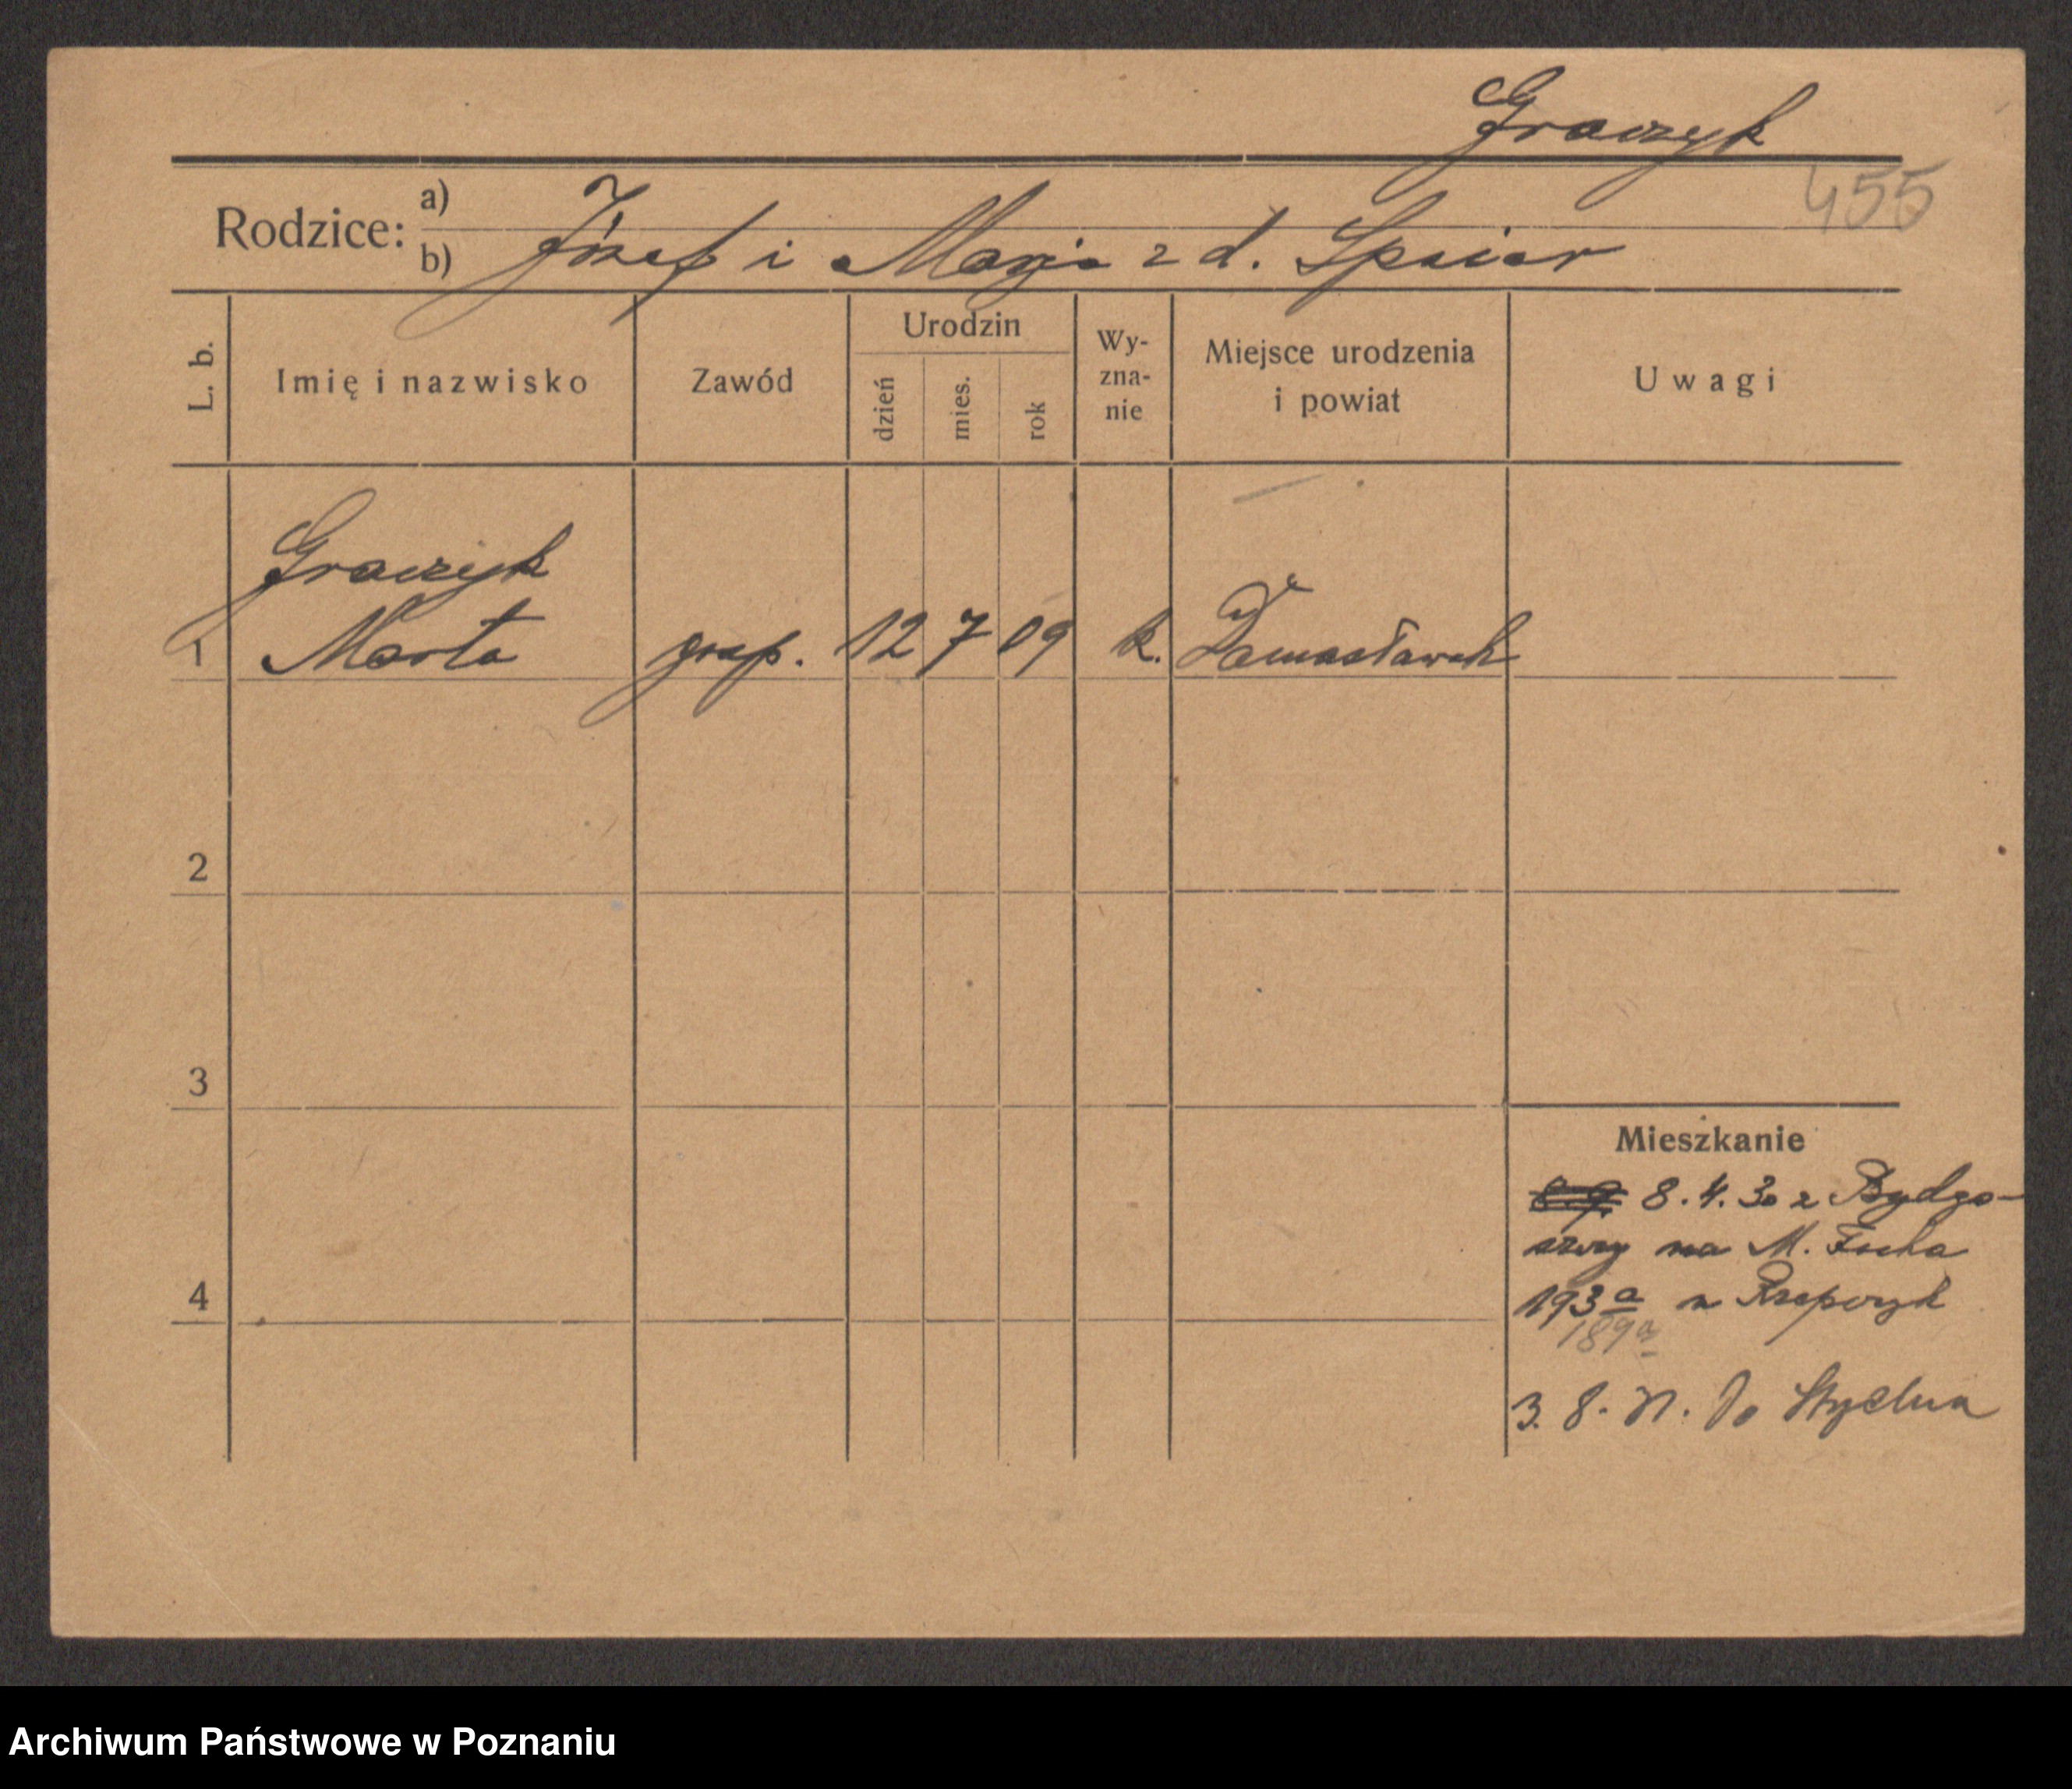 Graczyk
455
Rodzice: a)
b) Józef i Marja z d. Spziar
L. b.
Imię i nazwisko
Zawód
Urodzin
dzień
mies.
rok
Wy-
zna-
nie
Miejsce urodzenia
i powiat
Uwagi
Graczyk
1 Marta gosp. 12 7 09 k. Damasławek
2
3
4
Mieszkanie
8.4.30 z Bydgo-
szczy na M. Focha
193a u Rzepczyk
189a
3. 8. 31. Do
Archiwum Państwowe w Poznaniu